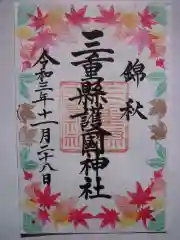 錦秋
三重縣護國神社
令和三年十一月二十八日